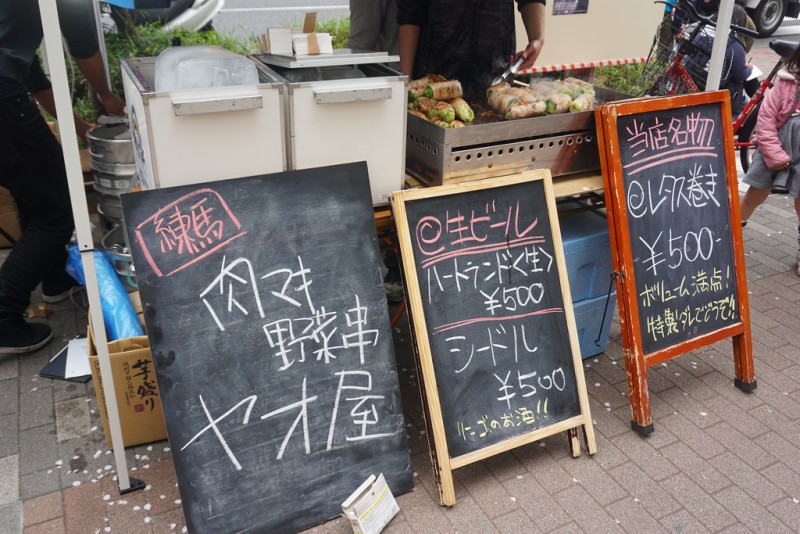 練馬
肉マキ
野菜串
ヤオ屋
◎生ビール
ハートランド〈生〉
¥500
シードル
¥500
リンゴのお酒!!
当店名物
◎レタス巻き
¥500-
ボリューム満点!
特製ダレでどうぞ!!
芋盛り